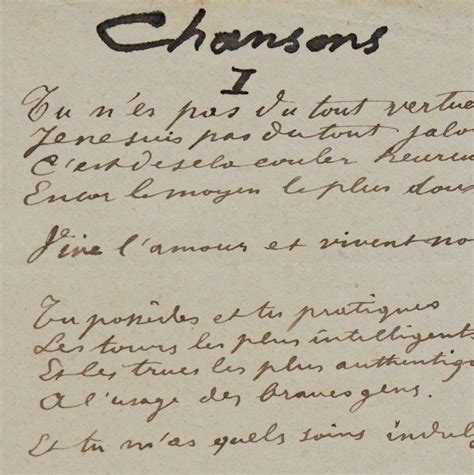 Chansons
I
Tu n'es pas du tout vertue
Je ne suis pas du tout jalo
C'est de se la couler heureu
Encor le moyen le plus dou
Vive l'amour et vivent no
Tu possèdes et tu pratiques
Les tours les plus intelligents
Et les trucs les plus authentiq
A l'usage des braves gens.
Et tu m'as quels soins indulg